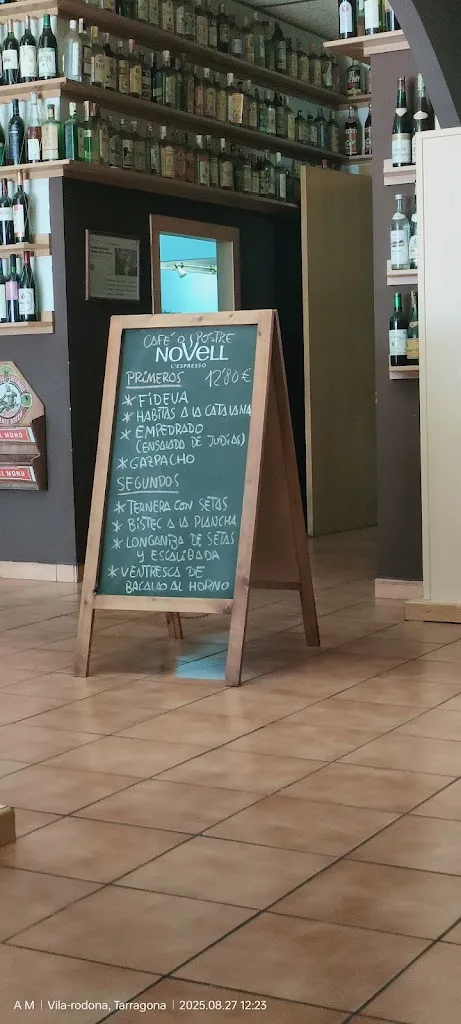 CAFÉ O POSTRE
NOVELL
L'ESPRESSO
PRIMEROS 12'80€
* FIDEUA
* HABITAS A LA CATALANA
* EMPEDRADO
(ENSALADA DE JUDIAS)
* GAZPACHO
SEGUNDOS
* TERNERA CON SETAS
* BISTEC A LA PLANCHA
* LONGANIZA DE SETAS
Y ESCALIBADA
* VENTRESCA DE
BACALAO AL HORNO
L MONO
L MONO
A M | Vila-rodona, Tarragona | 2025.08.27 12:23